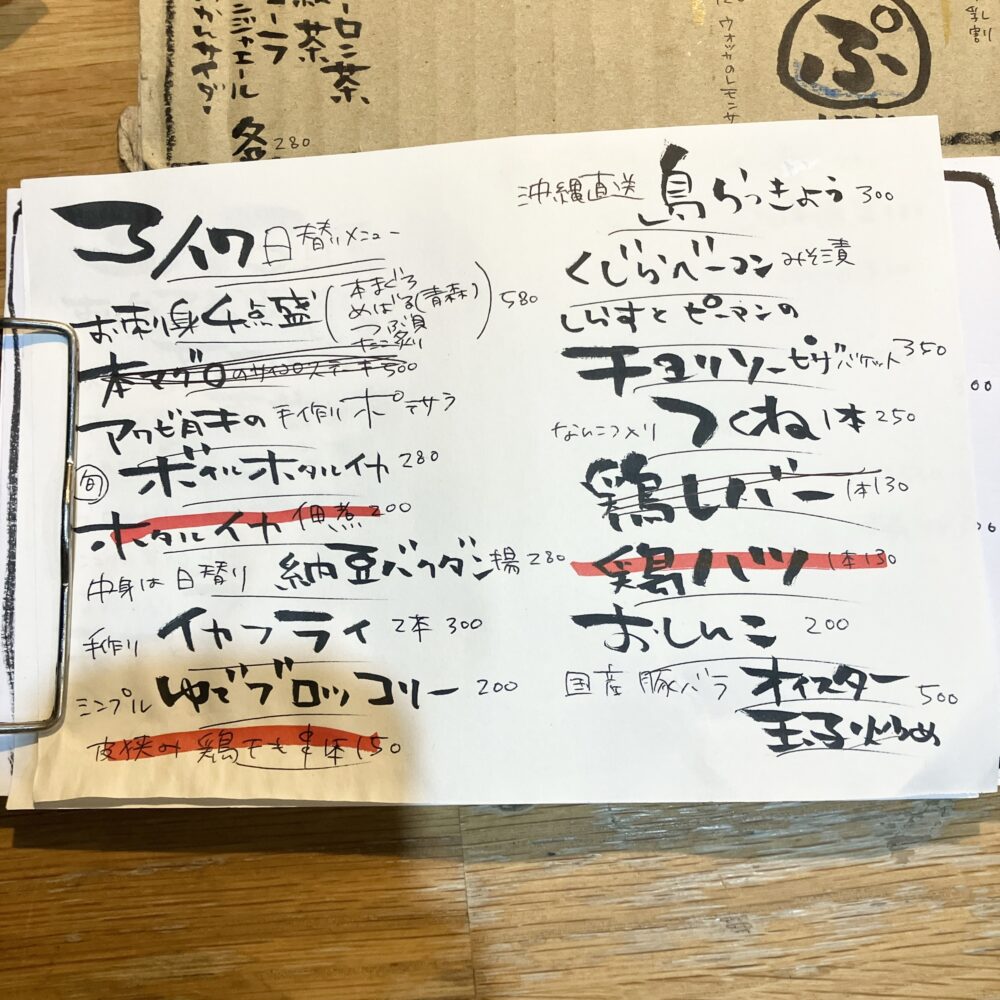 ーロン茶
茶
コーラ
ンジャエール
かんサイダー
280
ウオッカのレモンサ
ぷ
乳割
日替りメニュー
お刺身4点盛(本まぐろ
めばる(青森)
つぶ貝
たこ炙り) 580
本マグロのサイコロステーキ500
アワビ肝キの手作りポテサラ
旬 ボイルホタルイカ 280
ホタルイカ 佃煮 200
中身は日替り 納豆バクダン揚 280
手作り イカフライ 2本 300
シンプル ゆでブロッコリー 200
皮挟み 鶏モモ串1本150
沖縄直送 島らっきょう 300
くじらベーコン みそ漬
しらすとピーマンの
チョリソーピザバケット350
なんこつ入り つくね1本 250
鶏レバー 1本130
鶏ハツ 1本130
おしんこ 200
国産豚バラ オイスター 500
玉子炒め